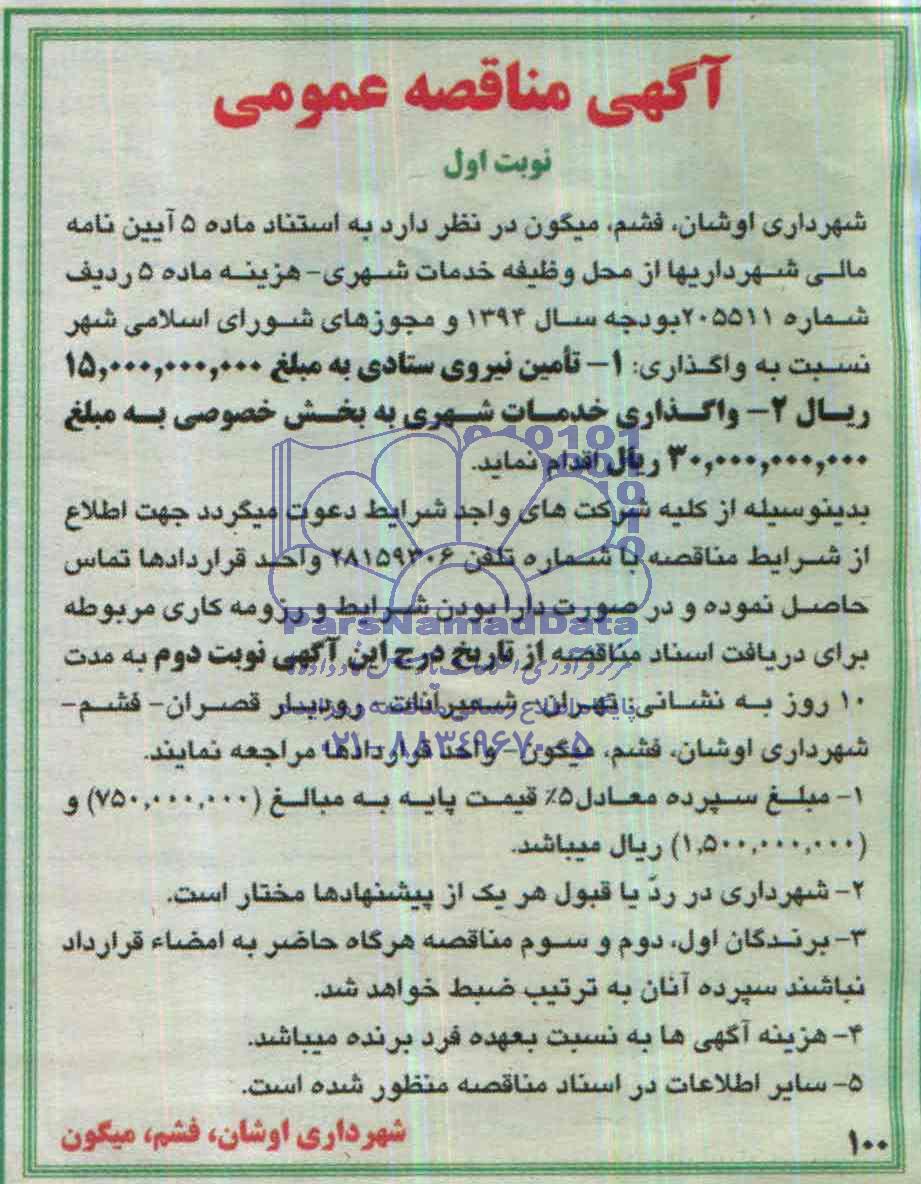 آگهی مناقصه عمومی
نوبت اول
شهرداری اوشان، فشم، میگون در نظر دارد به استناد ماده ۵ آیین نامه
مالـی شـهرداریها از محل وظیفه خدمات شـهری- هزینـه ماده ۵ ردیف
شـماره ۲۰۵۵۱۱بودجه سـال ۱۳۹۴ و مجوزهای شـورای اسلامی شهر
نسـبت به واگـذاری: ۱- تأمین نیروی ستادی به مبلغ ۱۵,۰۰۰,۰۰۰,۰۰۰
ریـال ۲- واگـذاری خدمـات شـهری به بخـش خصوصی بـه مبلغ
۳۰,۰۰۰,۰۰۰,۰۰۰ ریال اقدام نماید.
بدینوسیله از کلیه شرکت های واجد شرایط دعوت میگردد جهت اطلاع
از شـرایط مناقصه با شـماره تلفن ۲۸۱۵۹۳۰۶ واحـد قراردادها تماس
حاصـل نموده و در صورت دارا بودن شـرایط و رزومه کاری مربوطه
برای دریافت اسناد مناقصه از تاریخ درج این آگهی نوبت دوم به مدت
۱۰ روز بـه نشـانی تهران- شـمیرانات- رودبـار قصـران- فشـم-
شهرداری اوشان، فشم، میگون- واحد قراردادها مراجعه نمایند.
۱- مبلـغ سـپرده معـادل۵٪ قیمـت پایـه بـه مبالـغ (۷۵۰,۰۰۰,۰۰۰) و
(۱,۵۰۰,۰۰۰,۰۰۰) ریال میباشد.
۲- شهرداری در ردّ یا قبول هر یک از پیشنهادها مختار است.
۳- برنـدگان اول، دوم و سـوم مناقصه هرگاه حاضر به امضاء قرارداد
نباشند سپرده آنان به ترتیب ضبط خواهد شد.
۴- هزینه آگهی ها به نسبت بعهده فرد برنده میباشد.
۵- سایر اطلاعات در اسناد مناقصه منظور شده است.
شهرداری اوشان، فشم، میگون
۱۰۰
ParsNamadData
۰۲۱-۸۸۳۴۹۶۷۰-۵